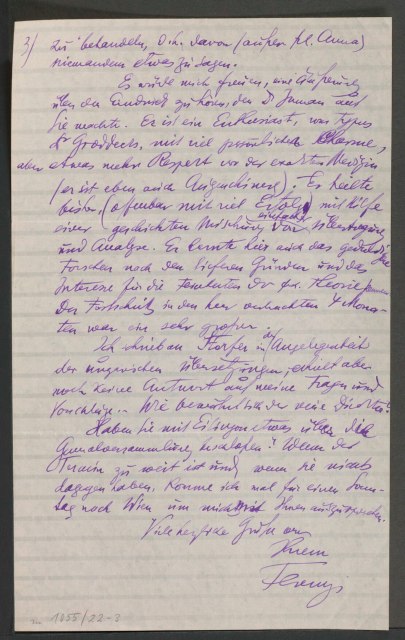 3/ zu behandeln, d.h. davon (außer Frl. Anna)
niemandem etwas zu sagen.
Es würde mich freuen, eine Äußerung
über den Eindruck zu hören, den Dr
Sie machte. Er ist ein Enthusiast, vom Typus
Groddecks, mit viel persönlichem Charme,
aber etwas mehr Respekt vor der exakten Medizin
(er ist eben auch Augenchirurg). Er heilte
bisher, (offenbar mit viel Erfolg) mit Hilfe
einer geschickten Mischung von einfacher Übertragung
und Analyse. Er lernte hier auch das geduldige
Forschen nach den tieferen Gründen und das
Interesse für die Feinheiten der Theorie
Der Fortschritt in den hier verbrachten 4 Mona-
ten war ein sehr großer.
Ich schrieb an Storfer in der Angelegenheit
der ungarischen Übersetzungen, erhielt aber
noch keine Antwort auf meine Fragen und
Vorschläge. Wie bewährt sich der neue Direktor?
Haben Sie mit Eitingon etwas über die
Generalversammlung beschlossen? Wenn der
Termin zu weit ist und wenn Sie nichts
dagegen haben, komme ich mal für einen Sonn-
tag nach Wien um mich mit Ihnen auszusprechen.
Viele herzliche Grüße von
Ihrem
Ferenczi
1055/22-3